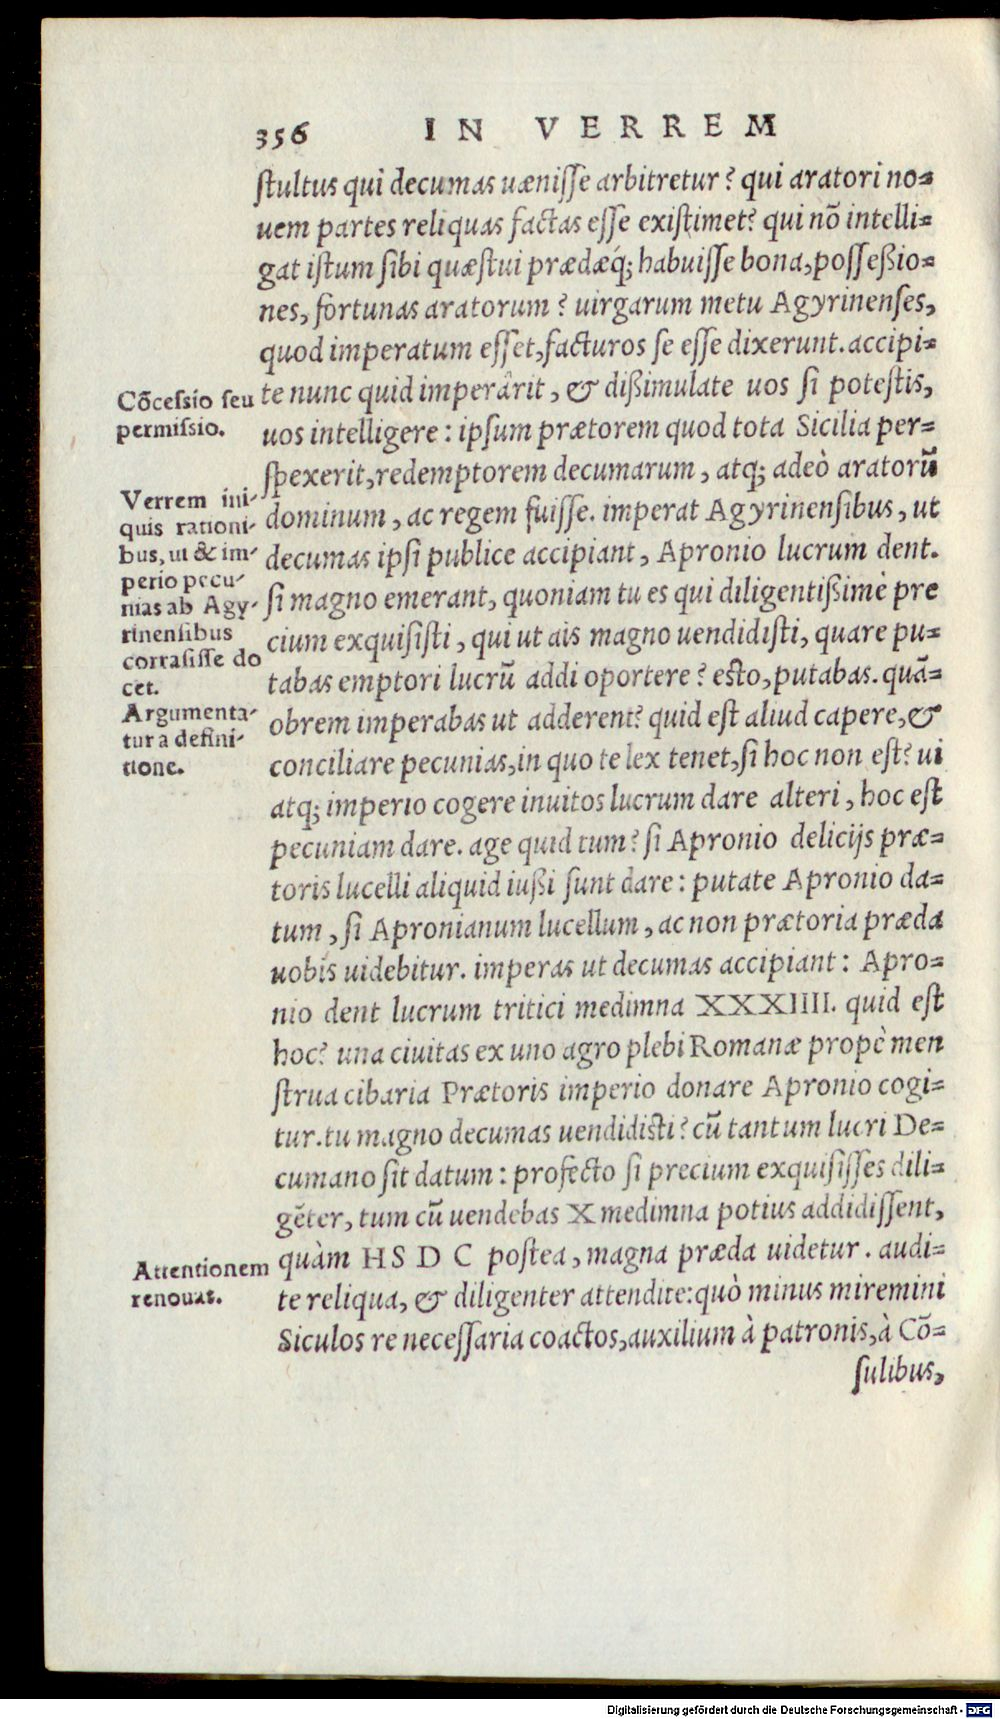 356 IN VERREM
stultus qui decumas uænisse arbitretur? qui aratori no=
uem partes reliquas factas esse existimet? qui nõ intelli=
gat istum sibi quæstui prædæq́; habuisse bona, posseßio=
nes, fortunas aratorum? uirgarum metu Agyrinenses,
quod imperatum esset, facturos se esse dixerunt. accipi=
te nunc quid imperârit, & dißimulate uos si potestis,
uos intelligere: ipsum prætorem quod tota Sicilia per=
spexerit, redemptorem decumarum, atq; adeò aratorũ
dominum, ac regem fuisse. imperat Agyrinensibus, ut
decumas ipsi publice accipiant, Apronio lucrum dent.
si magno emerant, quoniam tu es qui diligentißimè pre
cium exquisisti, qui ut ais magno uendidisti, quare pu=
tabas emptori lucrũ addi oportere? esto, putabas. quã=
obrem imperabas ut adderent? quid est aliud capere, &
conciliare pecunias, in quo te lex tenet, si hoc non est? ui
atq; imperio cogere inuitos lucrum dare alteri, hoc est
pecuniam dare. age quid tum? si Apronio delicijs præ=
toris lucelli aliquid iußi sunt dare: putate Apronio da=
tum, si Apronianum lucellum, ac non prætoria præda
uobis uidebitur. imperas ut decumas accipiant: Apro=
nio dent lucrum tritici medimna XXXIIII. quid est
hoc? una ciuitas ex uno agro plebi Romanæ propè men
strua cibaria Prætoris imperio donare Apronio cogi=
tur. tu magno decumas uendidisti? cũ tantum lucri De=
cumano sit datum: profecto si precium exquisisses dili=
gẽter, tum cũ uendebas X medimna potius addidissent,
quàm HS D C postea, magna præda uidetur. audi=
te reliqua, & diligenter attendite: quò minus miremini
Siculos re necessaria coactos, auxilium à patronis, à Cõ=
sulibus,
Cõcessio seu
permissio.
Verrem ini-
quis rationi-
bus, ut & im-
perio pecu-
nias ab Agy-
rinensibus
corrasisse do
cet.
Argumenta-
tur a defini-
tione.
Attentionem
renouat.
Digitalisierung gefördert durch die Deutsche Forschungsgemeinschaft - DFG